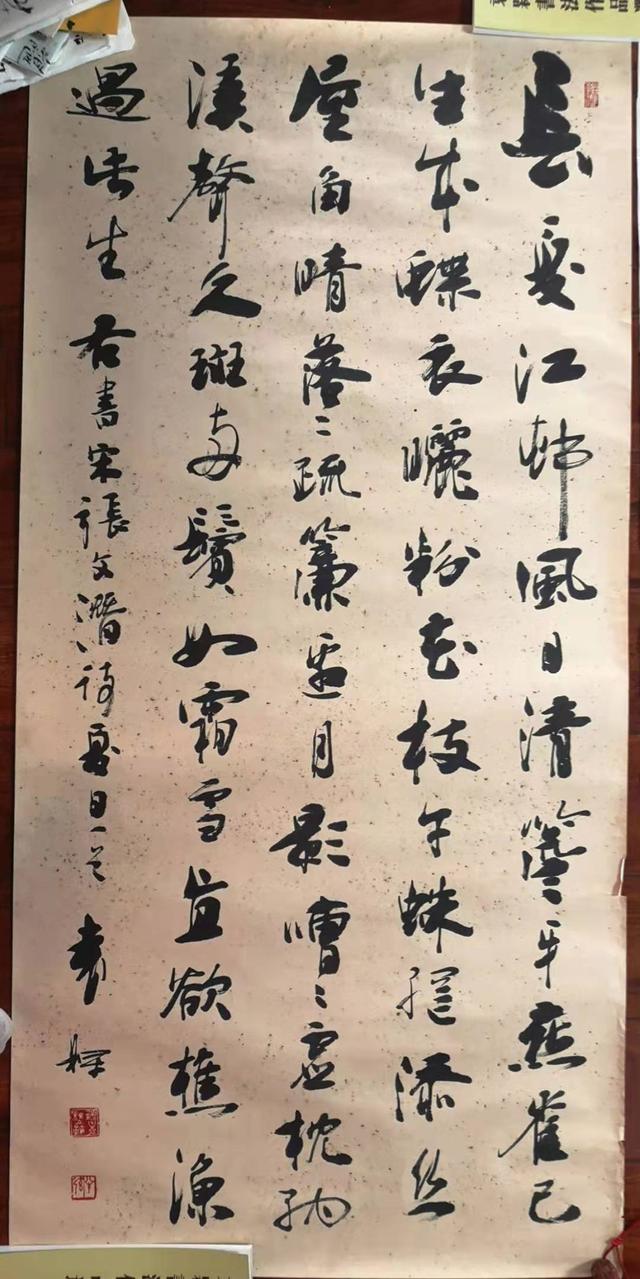 長夏江邨風日清簷牙燕雀已
生成蝶衣曬粉花枝午蛛網添絲
屋角晴落〻疏簾邀月影嘈〻虛枕納
溪聲久斑兩鬢如霜雪直欲樵漁
過此生 右書宋張文潛詩夏日一首 袁